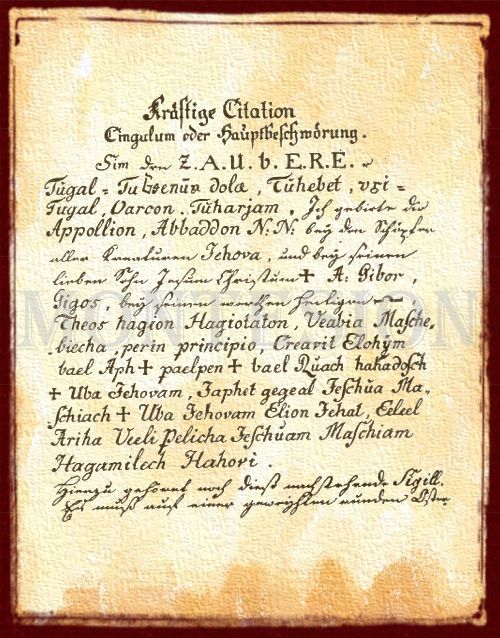 Kräftige Citation
Cingulum oder Hauptbeschwörung.
Sim den Z.A.U.b.E.R.E.
Tugal = Tulsenüs dola, Tühebet, vsi =
Tugal, Oarcon, Tüharjam, Ich gebiete dir
Appollion, Abbaddon N: N: bey den Schöpfer
aller Kreaturen Jehova, und bey seinen
lieben Sohn Jesum Christum + A: Gibor,
Gigos, bey seinen werthen heiligen
Theos hagion Hagiotaton, Veabia Masche,
biecha, perin principio, Creavit Elohÿm
bael Aph + paelpen + bael Ruach hakadosch
+ Uba Jehovam, Japhet gegeal Jeschua Ma =
schiach + Uba Jehovam Elion Jehat, Eeleel
Ariha Veeli Pelicha Jeschuam Maschiam
Hagamilech Hahovi.
Hierzu gehöret noch dieß nachstehende Sigill.
Es muß auf einer geweyhten runden Oster
MONTESION